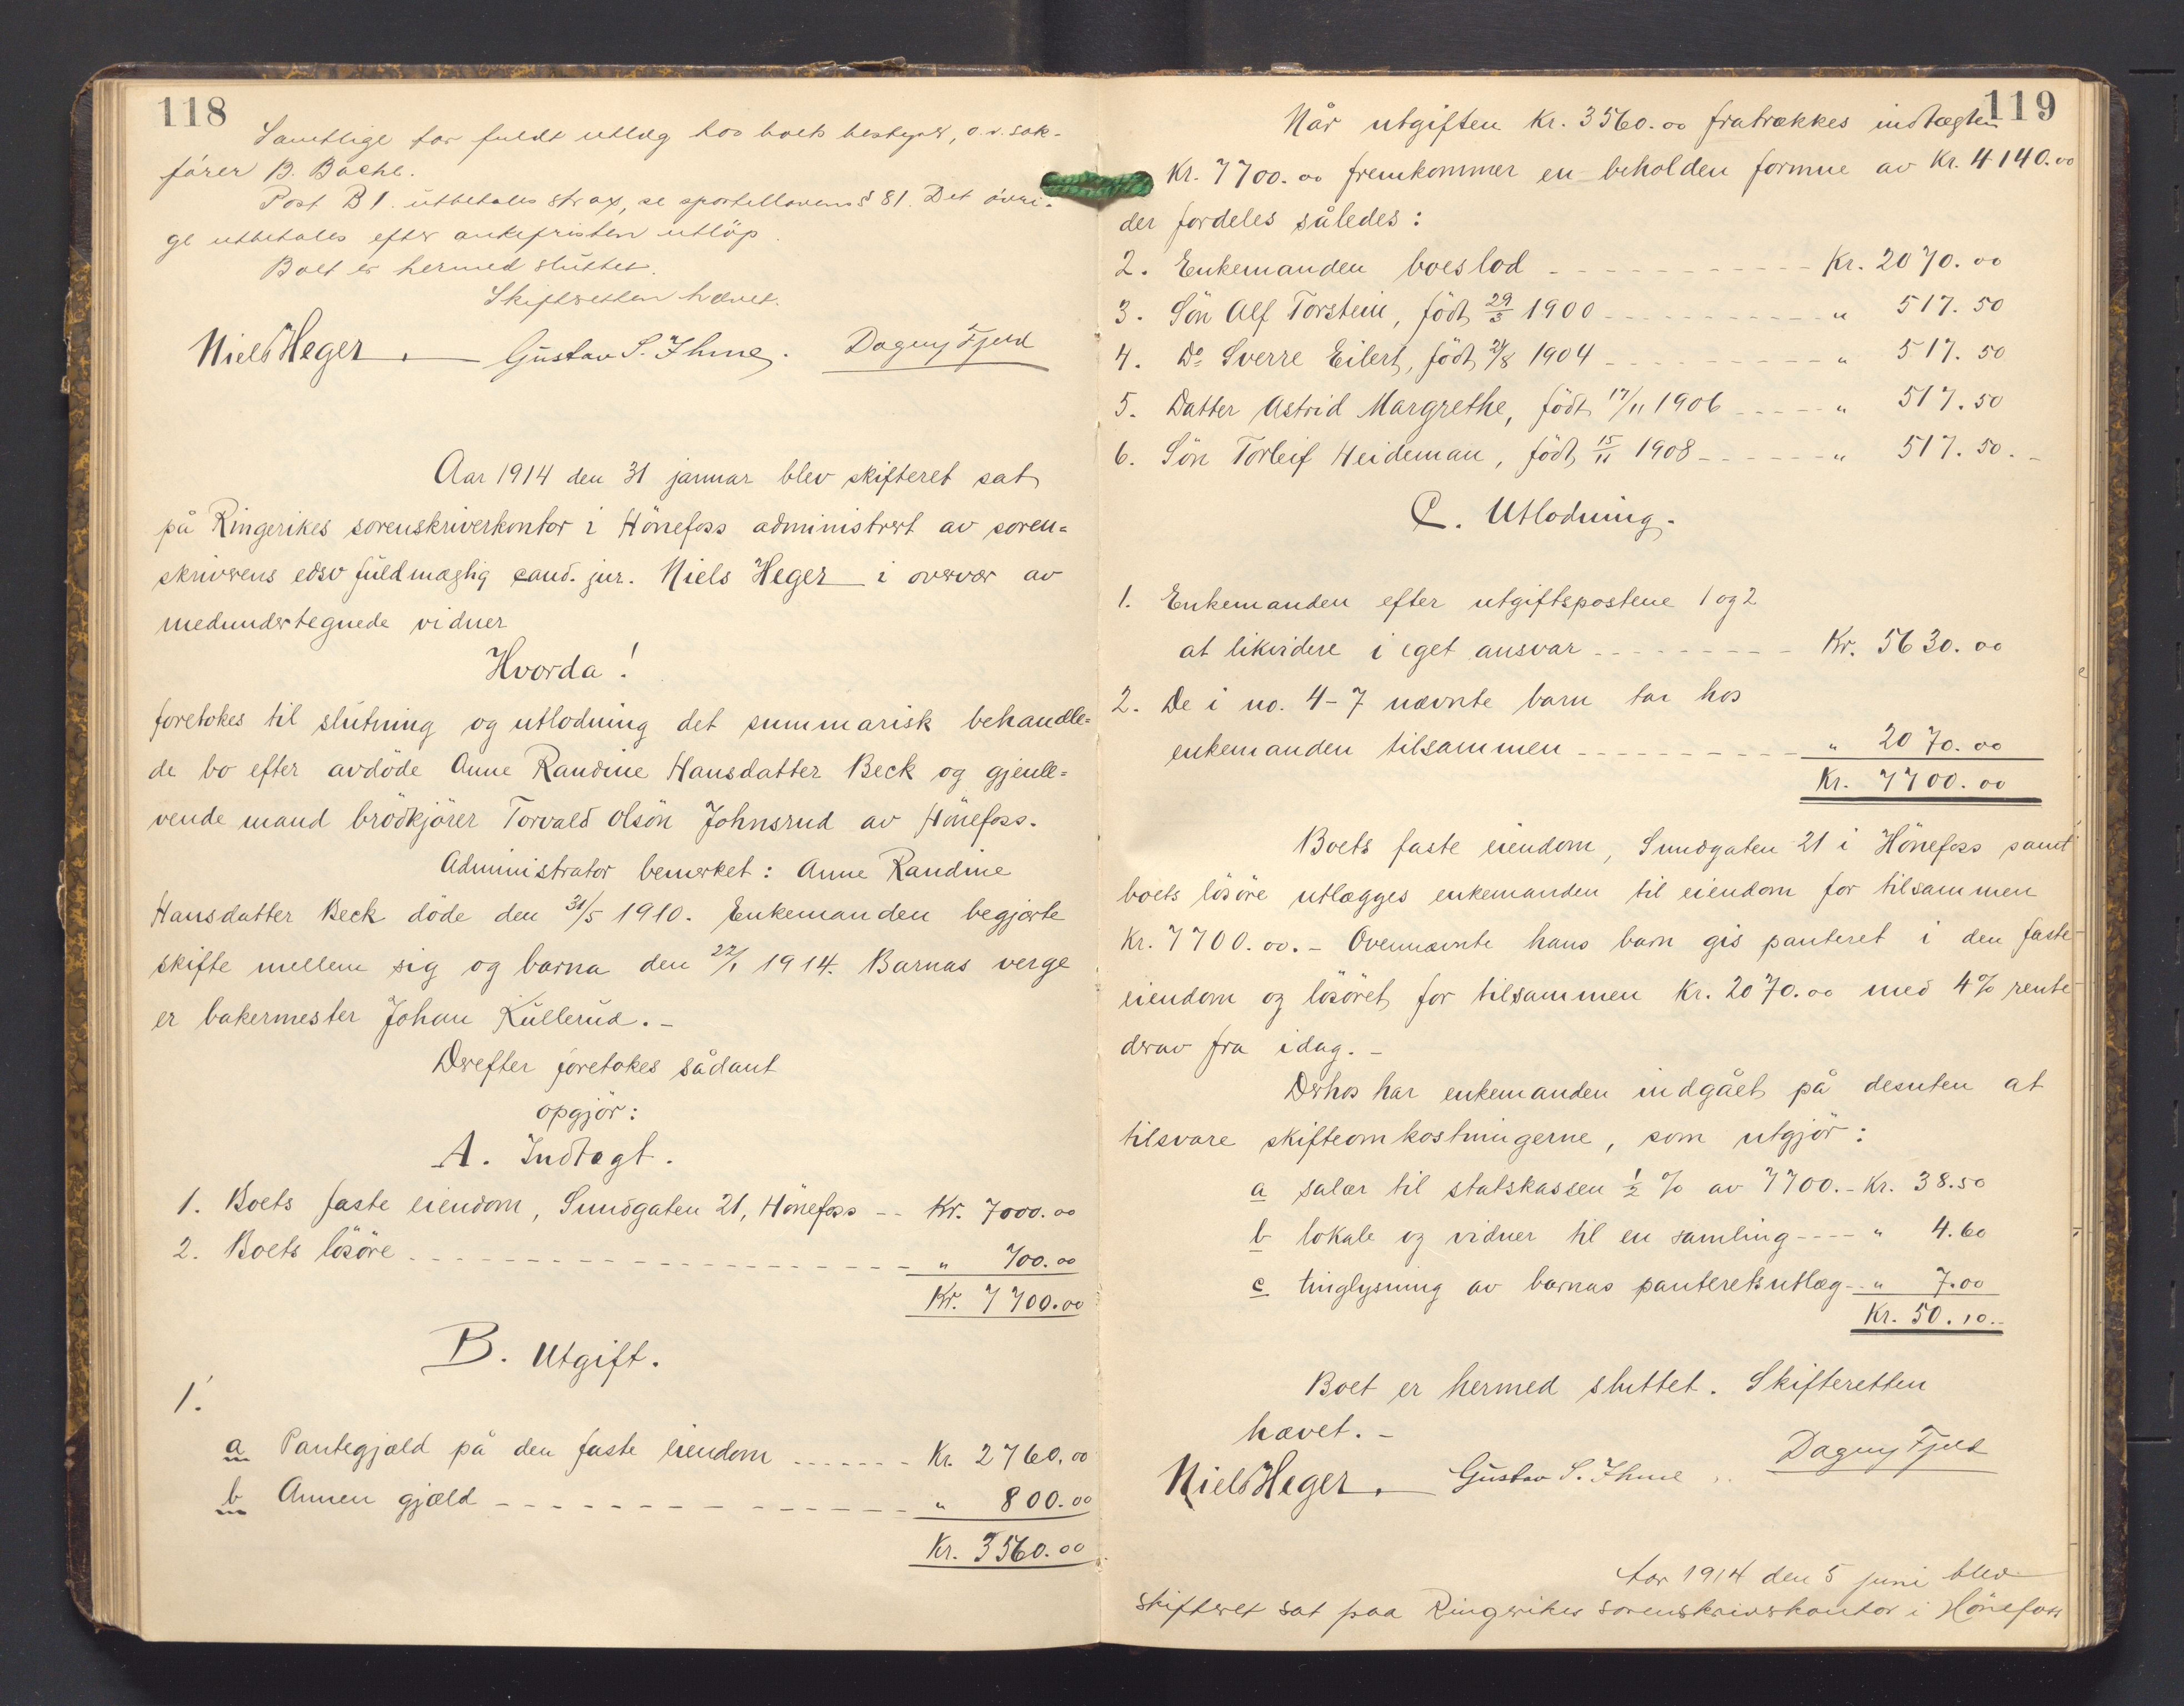 118
Samtlige tar fuldt utlæg hos boets bestyrer, o.r.sak-
fører B. Bache.
Post B 1. utbetales strax, se sportellovens § 81. Det øvri-
ge utbetales efter ankefristen utløp.
Boet er hermed sluttet.
Skifteretten hævet.
Niels Heger. Gustav S. Ihme. Dagny Fjeld
Aar 1914 den 31 januar blev skifteret sat
på Ringerikes sorenskriverkontor i Hönefoss administrert av soren=
skriverens edsv fuldmægtig cand. jur. Niels Heger i overvær av
medundertegnede vidner
Hvorda!
foretokes til slutning og utlodning det summarisk behandle=
de bo efter avdöde Anne Randine Hansdatter Beck og gjenle=
vende mand brödkjörer Torvald Olsön Johnsrud av Hönefoss.
Administrator bemerket: Anne Randine
Hansdatter Beck döde den 31/5 1910. Enkemanden begjærte
skifte mellem sig og barna den 22/1 1914. Barnas verge
er bakermester Johan Kullerud.-
Derefter foretokes sådant
opgjör:
A. Indtægt.
1. Boets faste eiendom, Sundgaten 21, Hönefoss -- Kr. 7000.00
2. Boets lösöre - - - " 700.00
Kr. 7700.00
B. Utgift.
1.
a Pantegjæld på den faste eiendom - - - Kr. 2760.00
b Annen gjæld - - - " 800.00
Kr. 3560.00
119
Når utgiften Kr. 3560.00 fratrækkes indtægten
Kr. 7700.00 fremkommer en beholden formue av Kr. 4140.00
der fordeles således:
2. Enkemanden boeslod - - - Kr. 2070.00
3. Sön Alf Torstein, födt 29/3 1900 - - - " 517.50
4. Do Sverre Eilert, födt 21/8 1904 - - - " 517.50
5. Datter Astrid Margrethe, födt 17/11 1906 - - - " 517.50
6. Sön Torleif Heideman, födt 15/11 1908 - - - " 517.50.-
C. Utlodning.
1. Enkemanden efter utgiftspostene 1 og 2
at likvidere i eget ansvar - - - Kr. 5630.00
2. De i no. 4-7 nævnte barn tar hos
enkemanden tilsammen - - - " 2070.00
Kr. 7700.00
Boets faste eiendom, Sundgaten 21 i Hönefoss samt
boets lösöre utlægges enkemanden til eiendom for tilsammen
Kr. 7700.00.- Ovennævnte hans barn gis panteret i den faste
eiendom og lösöret for tilsammen Kr. 2070.00 med 4% rente
derav fra idag.-
Derhos har enkemanden indgået på desuten at
tilsvare skifteomkostningerne, som utgjör:
a salær til statskassen 1/2 % av 7700.- Kr. 38.50
b lokale og vidner til en samling ---- " 4.60
c tinglysning av barnas panteretsutlæg -- " 7.00
Kr. 50.10.-
Boet er hermed sluttet. Skifteretten
hævet.-
Niels Heger. Gustav S. Ihme. Dagny Fjeld
Aar 1914 den 5 juni blev
skifteret sat paa Ringerikes sorenskriverkontor i Hönefoss